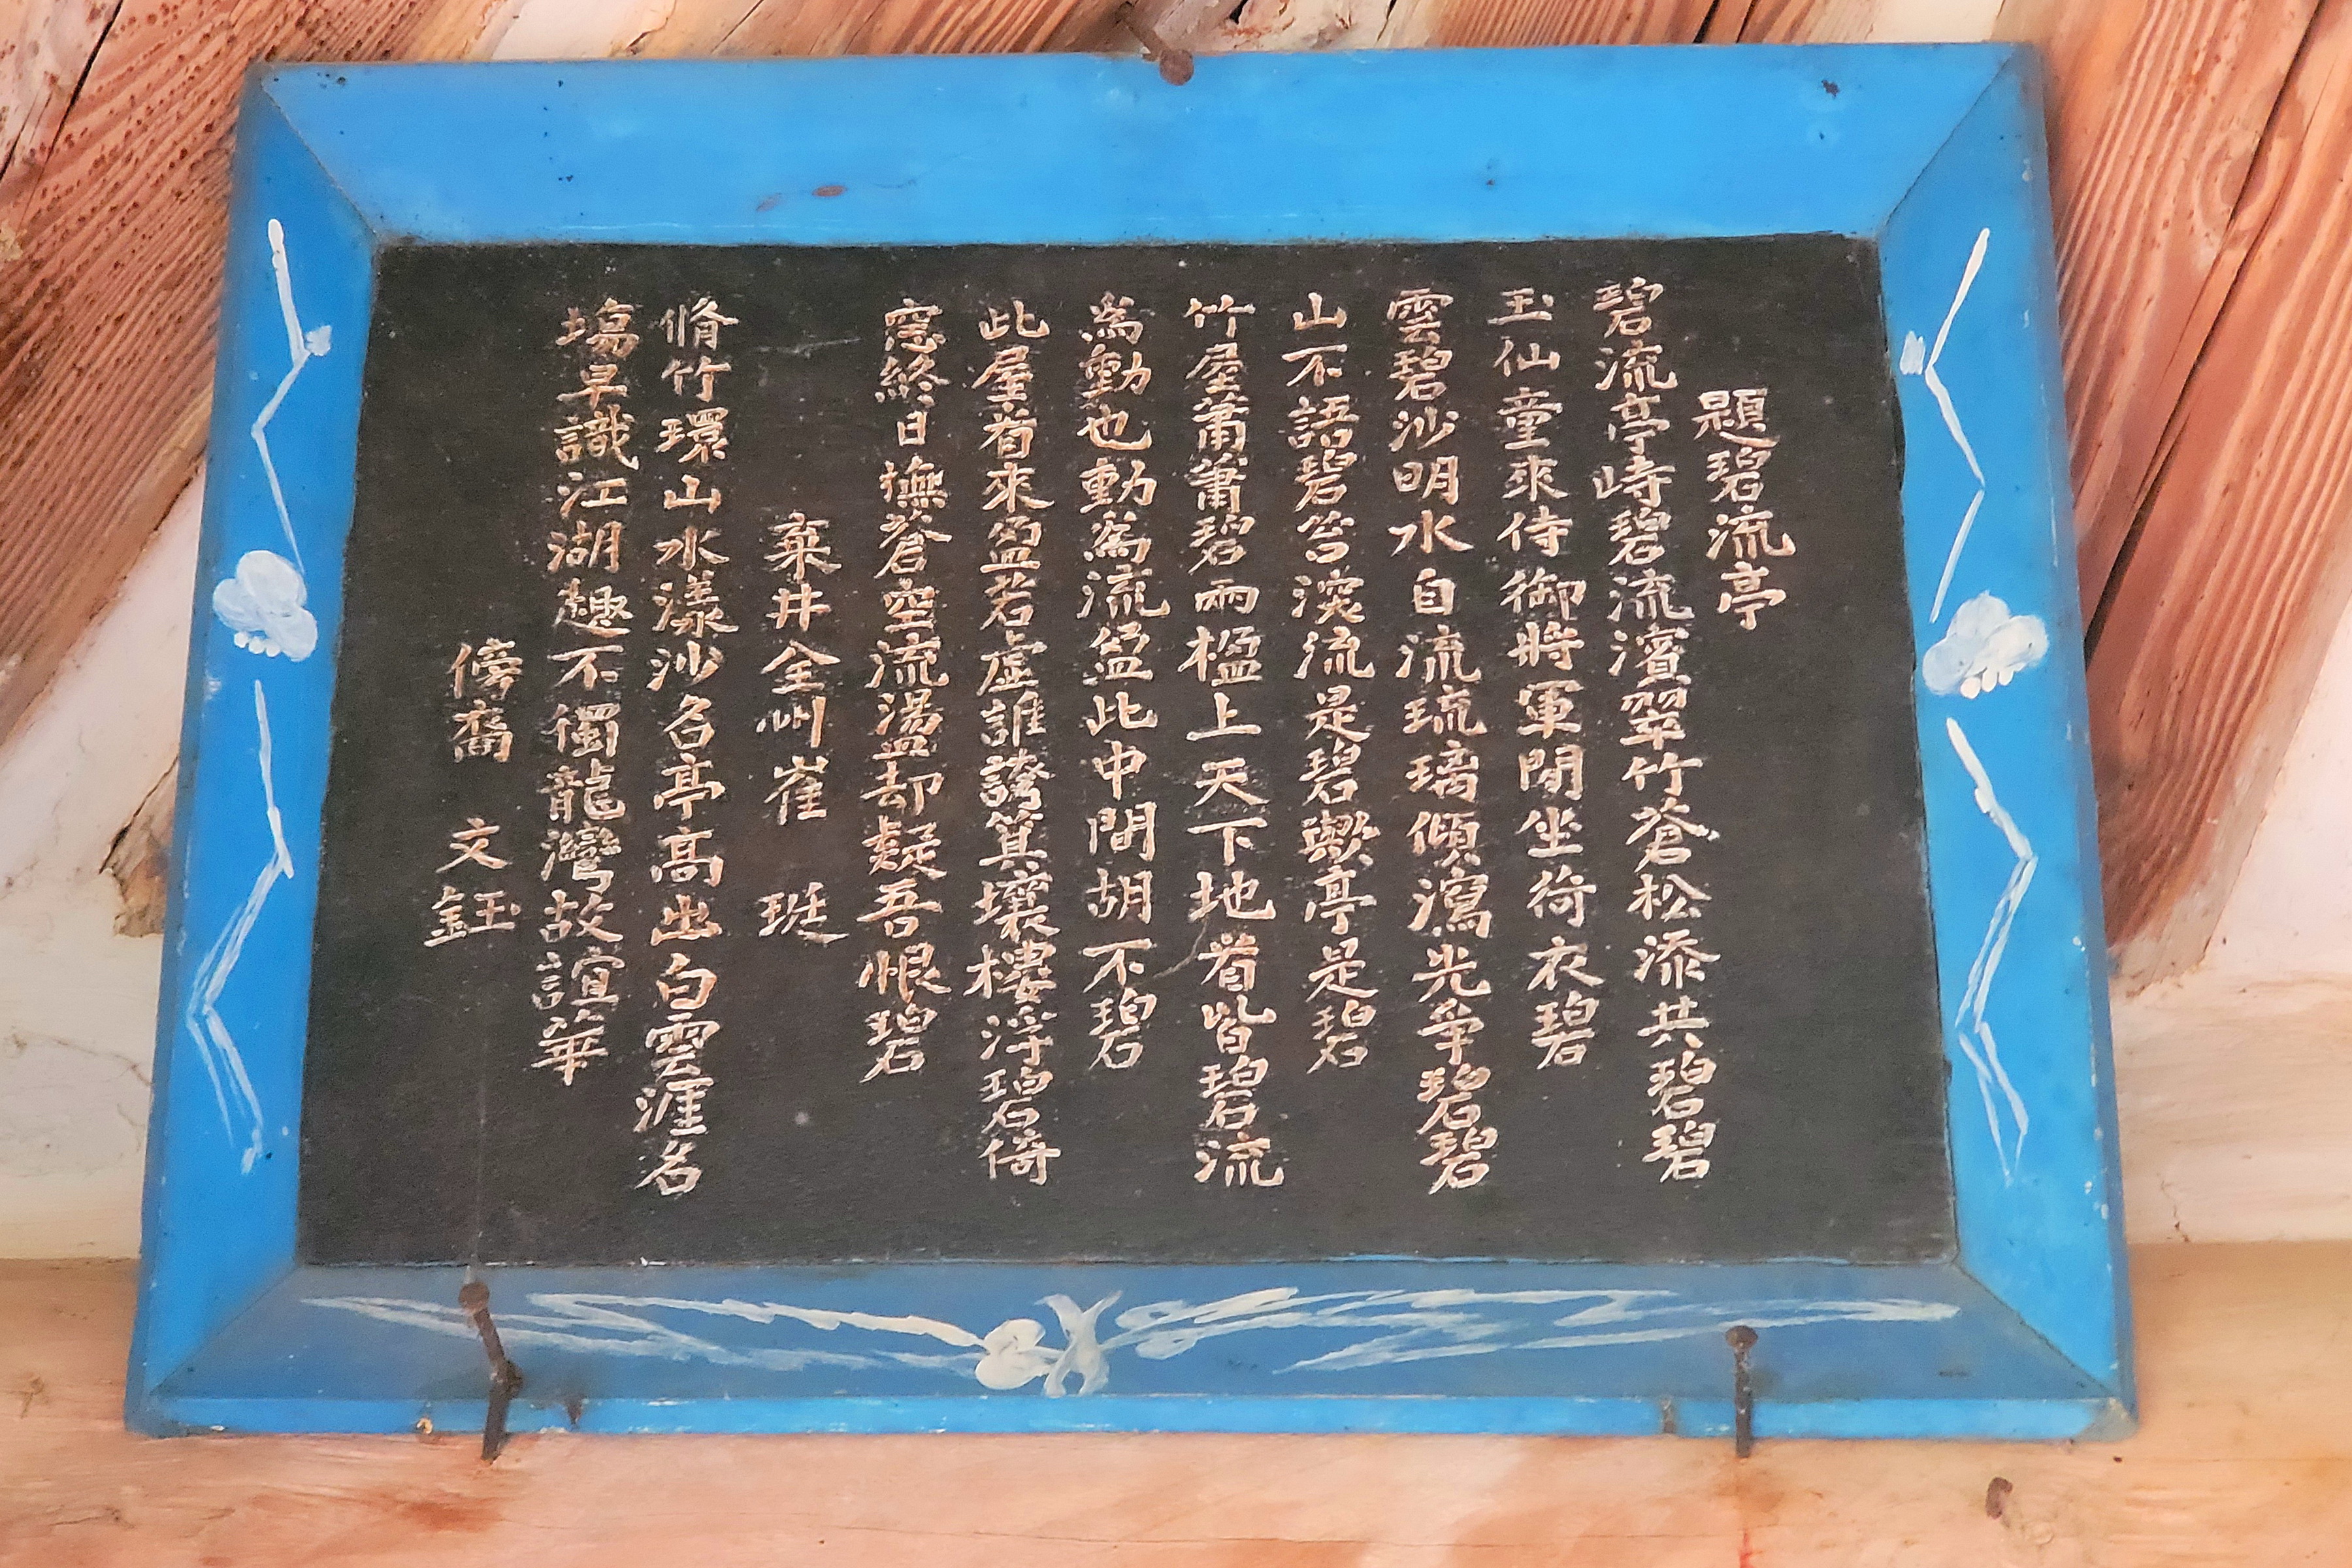 題碧流亭
碧流亭峙碧流濱翠竹蒼松添共碧碧
玉仙童來侍御將軍閒坐荷衣碧
雲碧沙明水自流琉璃傾瀉光爭碧碧
山不語碧笞滾流是碧歟亭是碧
竹屋蕭蕭碧雨楹上天下地看皆碧流
為動也動為流盈此中間胡不碧
此屋看來盈若虛誰誇箕壤樓浮碧倚
窓終日撫蒼空流湯盪却疑吾恨碧
棄井全州崔 珽
脩竹環山水漾沙名亭高出白雲涯名
塲早識江湖趣不獨龍灣故誼華
傍裔 文鈺